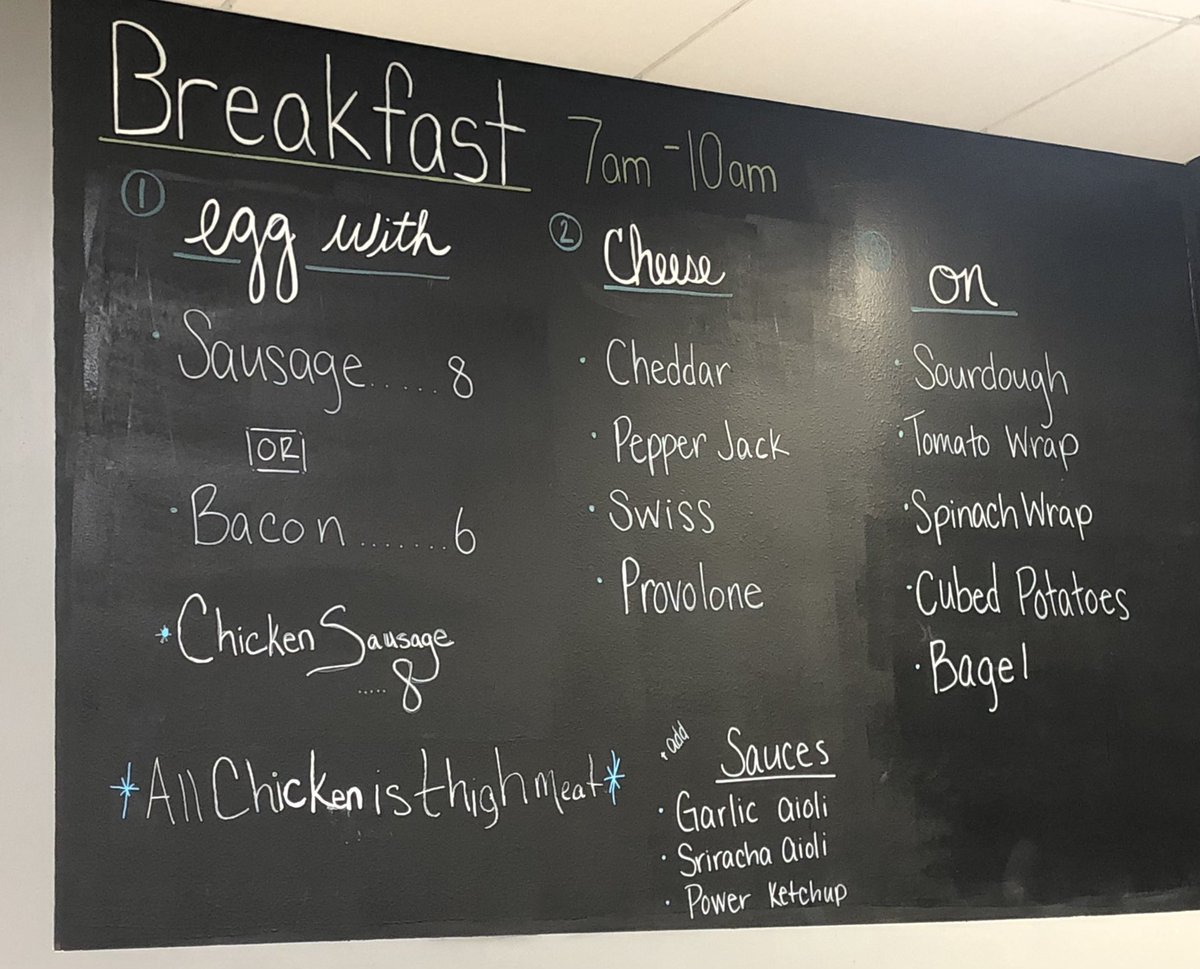 Breakfast 7am - 10am
① egg with
• Sausage......8
OR
• Bacon.......6
* Chicken Sausage
.....8
*All Chicken is thigh meat*
② Cheese
• Cheddar
• Pepper Jack
• Swiss
• Provolone
on
• Sourdough
• Tomato Wrap
• Spinach Wrap
• Cubed Potatoes
• Bagel
• add
Sauces
• Garlic aioli
• Sriracha aioli
• Power Ketchup